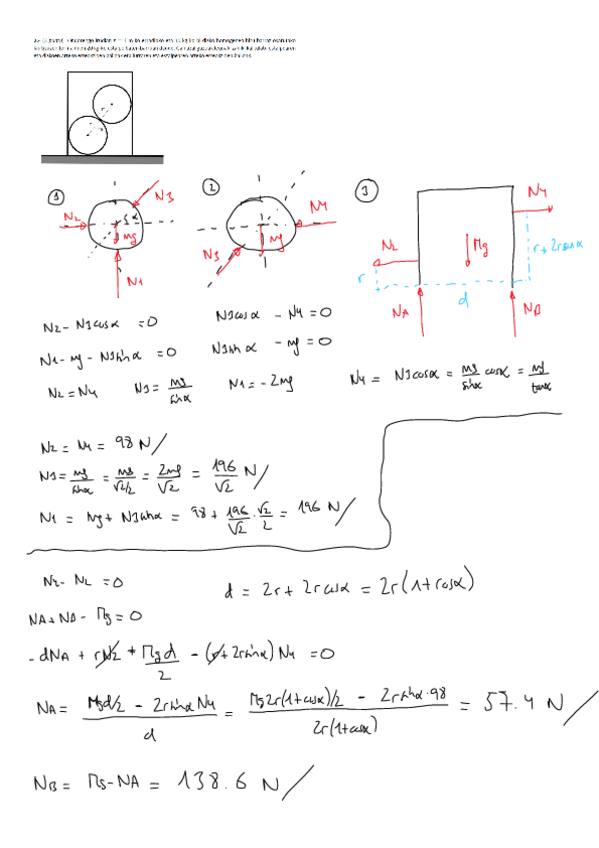 1
N3
N2
α
mg
N1
2
N4
mg
N3
3
N4
N2
Mg
r+2rsinα
r
d
NA
NB
N2 - N3cosα = 0
N1 - mg - N3sinα = 0
N2 = N4 N3 = mg/sinα N1 = -2mg
N3cosα - N4 = 0
N3sinα - mg = 0
N4 = N3cosα = mg/sinα cosα = mg/tanα
N2 = N4 = 98 N/
N3 = mg/sinα = mg/√2/2 = 2mg/√2 = 196/√2 N/
N1 = mg + N3sinα = 98 + 196/√2 · √2/2 = 196 N/
d = 2r + 2rcosα = 2r(1+cosα)
NA + NB - Mg = 0
- dNA + rN2 + Mgd/2 - (r+2rsinα) N4 = 0
NA = Mgd/2 - 2rsinα N4 / d = Mg2r(1+cosα)/2 - 2rsinα·98 / 2r(1+cosα) = 57.4 N/
NB = Mg - NA = 138.6 N/